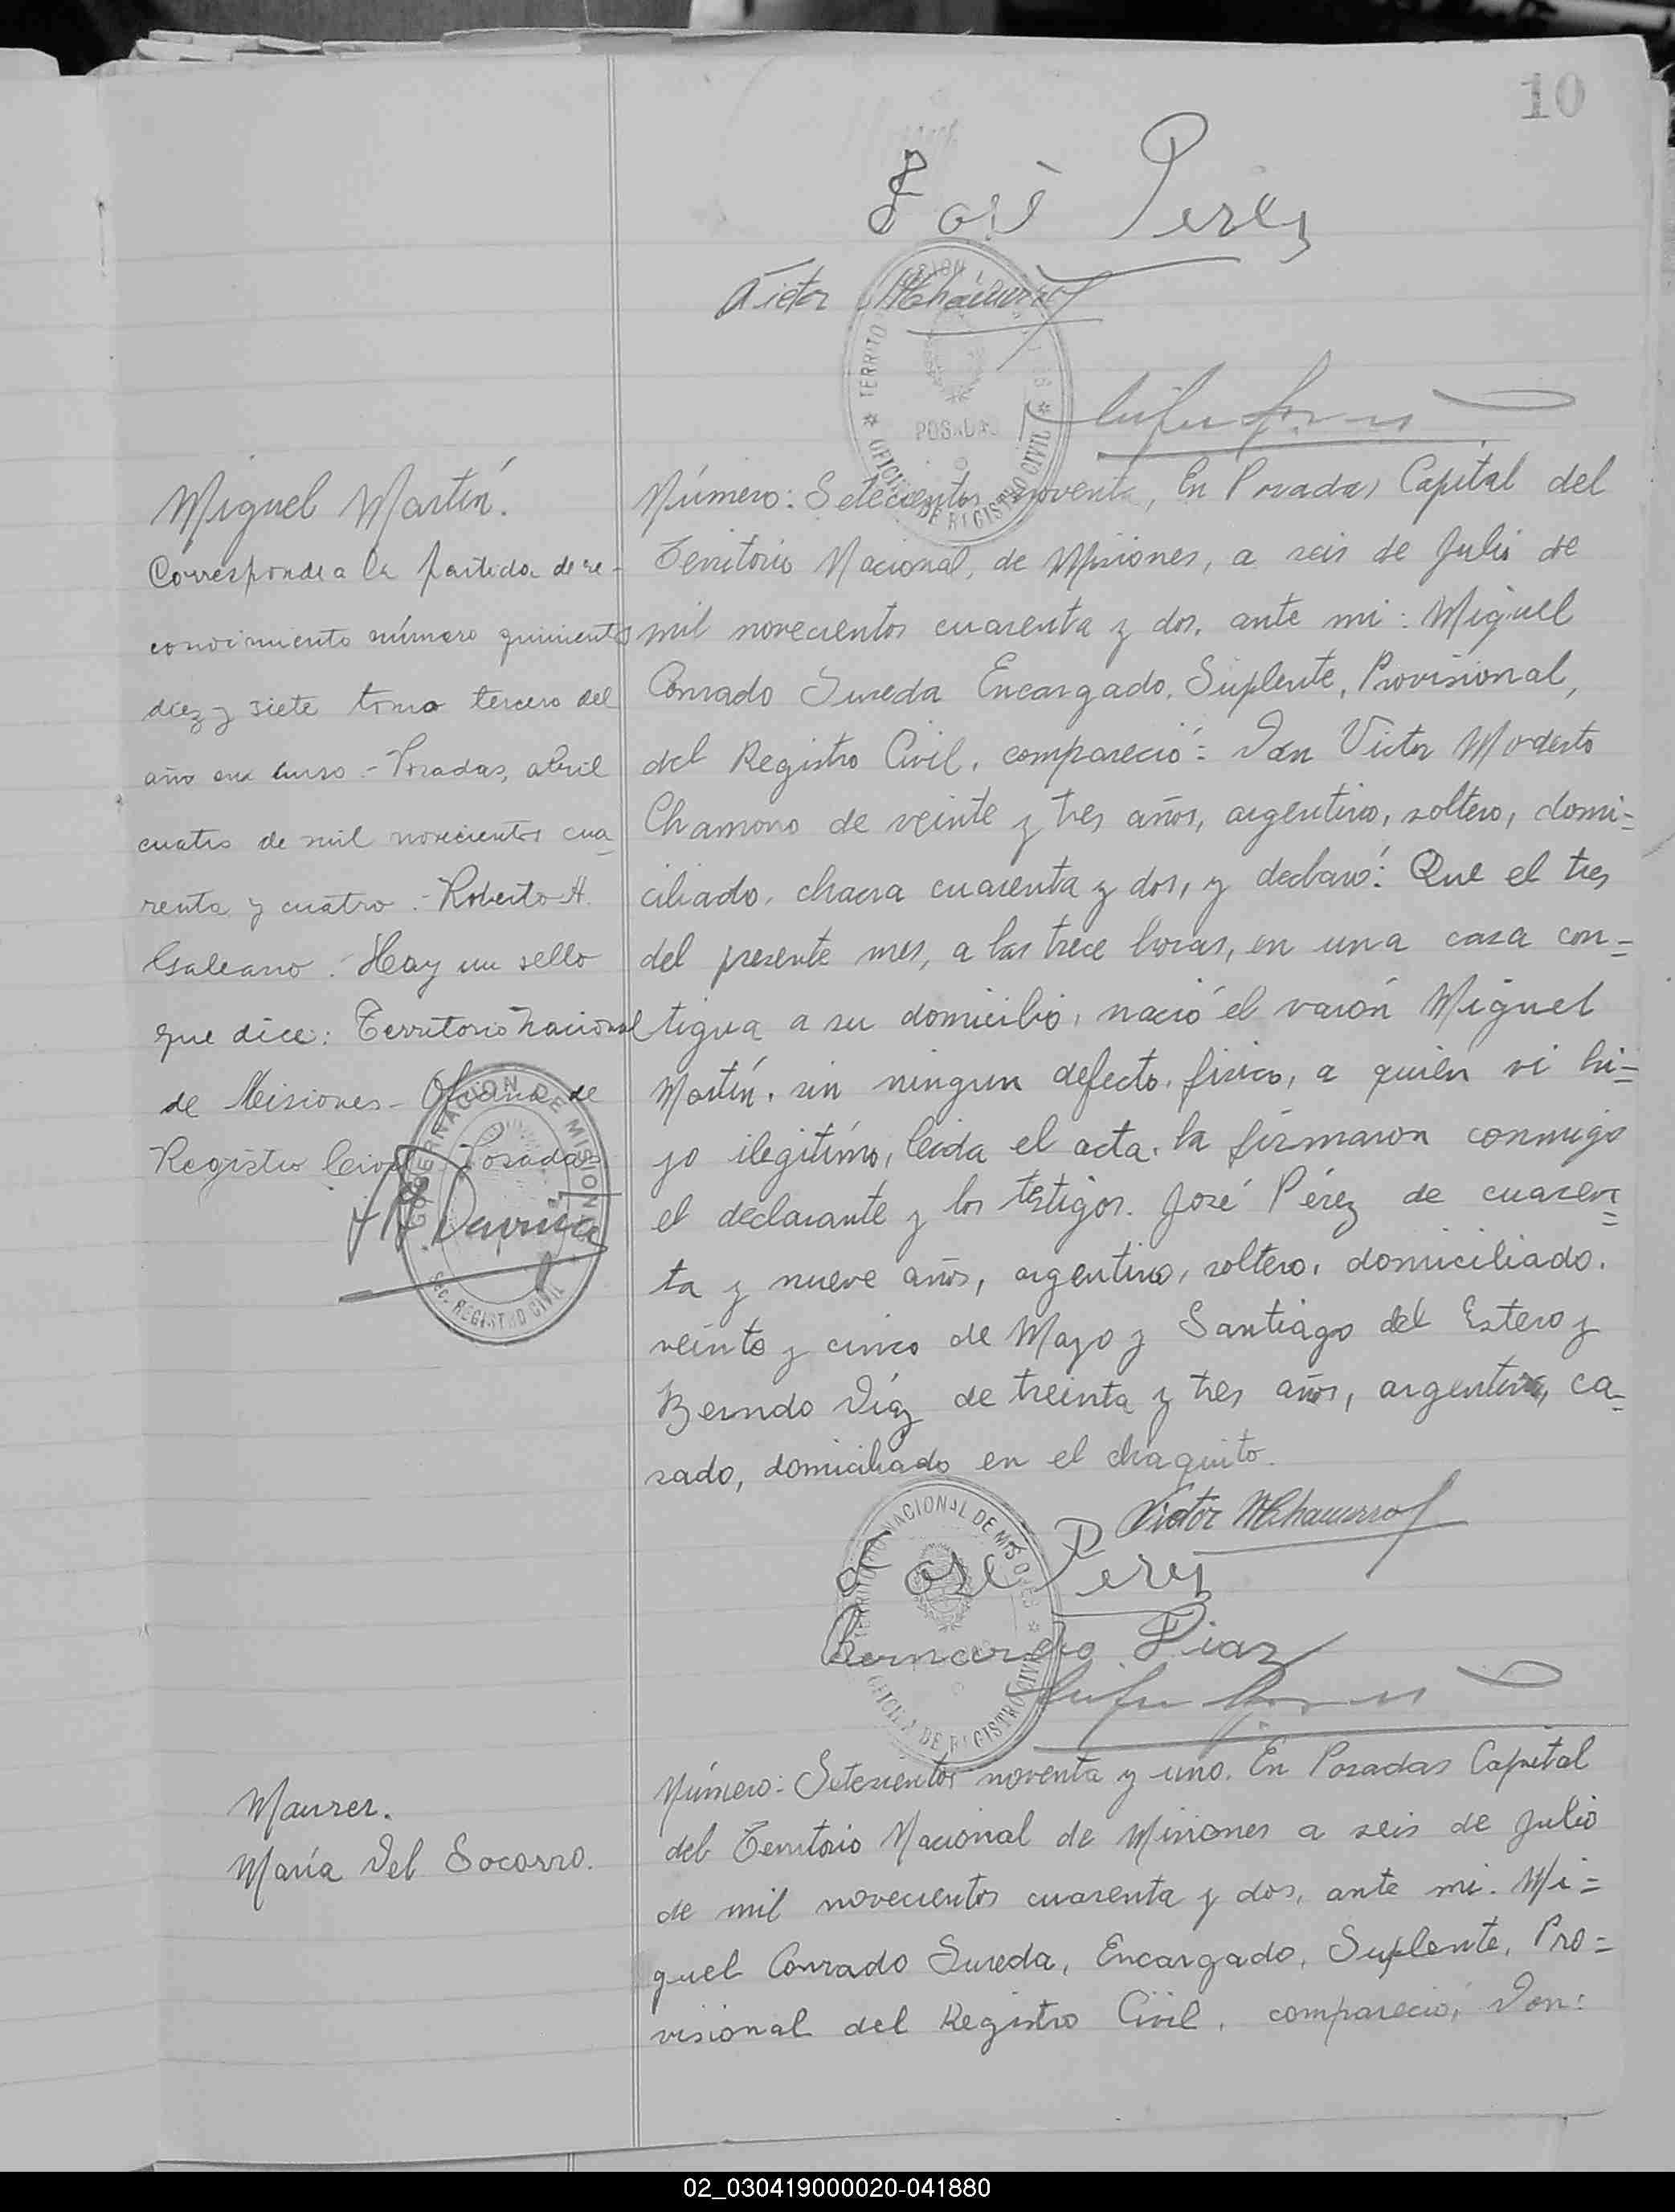 10
José Peres
Victor MChamorro
Miguel Martín.
Corresponde a la partida de re-
conocimiento número quinientos
diez y siete tomo tercero del
año en curso.- Posadas, abril
cuatro de mil novecientos cua
renta y cuatro.- Roberto H.
Galeano. Hay un sello
que dice: Territorio nacional
de Misiones- Oficina de
Registro Civil Posadas
GOBERNACION DE MISIONES
SEC. REGISTRO CIVIL
TERRITO
POSADAS
OFICINA DE REGISTRO CIVIL
Número: Setecientos noventa, En Posadas Capital del
Territorio Nacional, de Misiones, a seis de Julio de
mil novecientos cuarenta y dos, ante mi: Miguel
Conrado Sureda Encargado, Suplente, Provisional,
del Registro Civil, compareció: Don Victor Modesto
Chamorro de veinte y tres años, argentino, soltero, domi=
ciliado, chacra cuarenta y dos, y declaró: Que el tres
del presente mes, a las trece horas, en una casa con=
tigua a su domicilio, nació el varón Miguel
Martín, sin ningun defecto, fisico, a quien vi hi=
jo ilegitimo, leida el acta, la firmaron conmigo
el declarante y los testigos. José Pérez de cuaren=
ta y nueve años, argentino, soltero, domiciliado,
veinte y cinco de Mayo y Santiago del Estero y
Berndo Díaz de treinta y tres años, argentino, ca=
sado, domiciliado en el chaquito.
Victor MChamorro
José Peres
Bernardo Diaz
TERRITORIO NACIONAL DE MISIONES
OFICINA DE REGISTRO CIVIL
Maurer.
María Del Socorro.
Número: Setecientos noventa y uno. En Posadas Capital
del Territorio Nacional de Misiones a seis de Julio
de mil novecientos cuarenta y dos, ante mi. Mi=
guel Conrado Sureda, Encargado, Suplente, Pro=
visional del Registro Civil, compareció, Don:
02_030419000020-041880